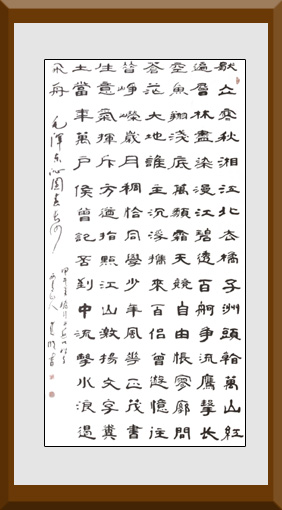 獨立寒秋湘江北去橘子洲頭看萬山紅
遍層林盡染漫江碧透百舸爭流鷹擊長
空魚翔淺底萬類霜天競自由悵寥廓問
蒼茫大地誰主沉浮攜來百侶曾遊憶往
昔崢嶸歲月稠恰同學少年風華正茂書
生意氣揮斥方遒指點江山激揚文字糞
土當年萬戶侯曾記否到中流擊水浪遏
飛舟 毛澤東沁園春長沙
甲午